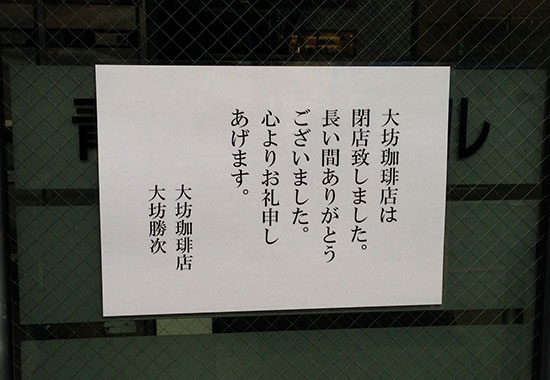 大坊珈琲店は
閉店致しました。
長い間ありがとう
ございました。
心よりお礼申し
あげます。
大坊珈琲店
大坊勝次
青
ル